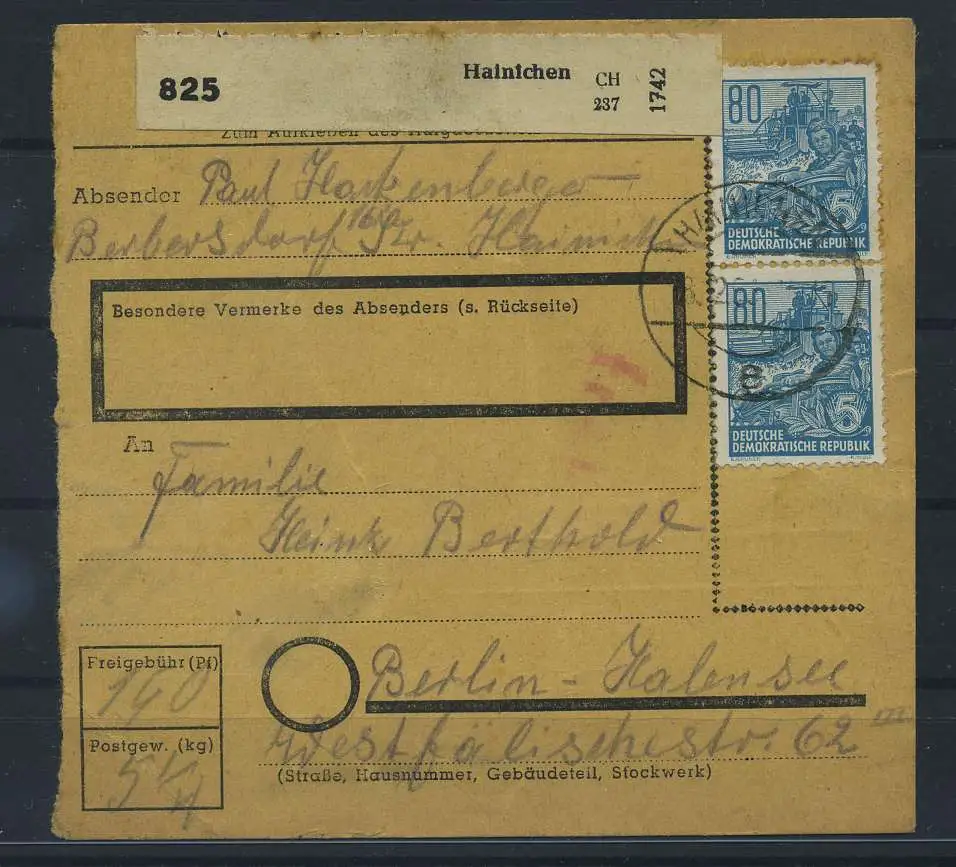 825 Hainichen CH 237 1742
Zum Aufkleben des
Absender Paul Hackenberger
Berbersdorf 160 Kr. Hainich
Besondere Vermerke des Absenders (s. Rückseite)
An
Familie
Heinz Berthold
Freigebühr (Pf)
Berlin - Halensee
Postgew. (kg)
5 kg
Westfälischestr. 62
(Straße, Hausnummer, Gebäudeteil, Stockwerk)
80
5
DEUTSCHE
DEMOKRATISCHE REPUBLIK
80
5
DEUTSCHE
DEMOKRATISCHE REPUBLIK
e